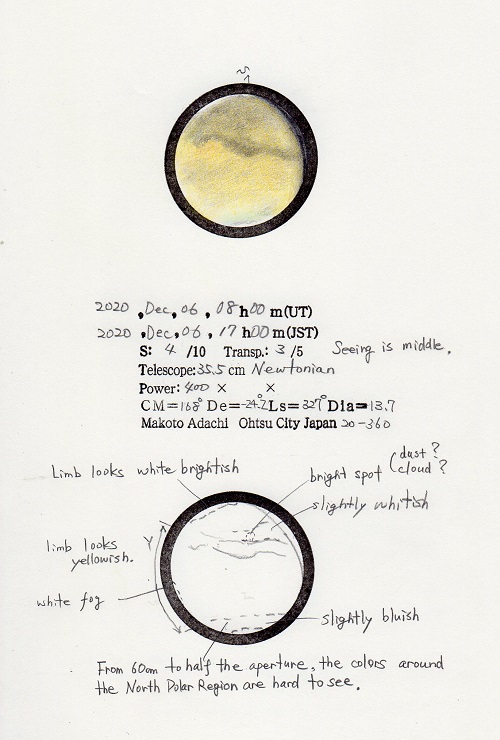 S
2020 , Dec, 06 , 08 h00 m(UT)
2020 , Dec, 06 , 17 h00 m(JST)
S: 4 /10 Transp.: 3 /5 Seeing is middle.
Telescope:35.5 cm Newtonian
Power: 400 × ×
CM=168° De=-24.2 Ls=327° Dia=13.7
Makoto Adachi Ohtsu City Japan 20-360
dust ?
Limb looks white brightish
bright spot ( cloud ?
slightly whitish
limb looks
yellowish.
Y
white fog
slightly bluish
From 60cm to half the aperture, the colors around
the North Polar Region are hard to see.